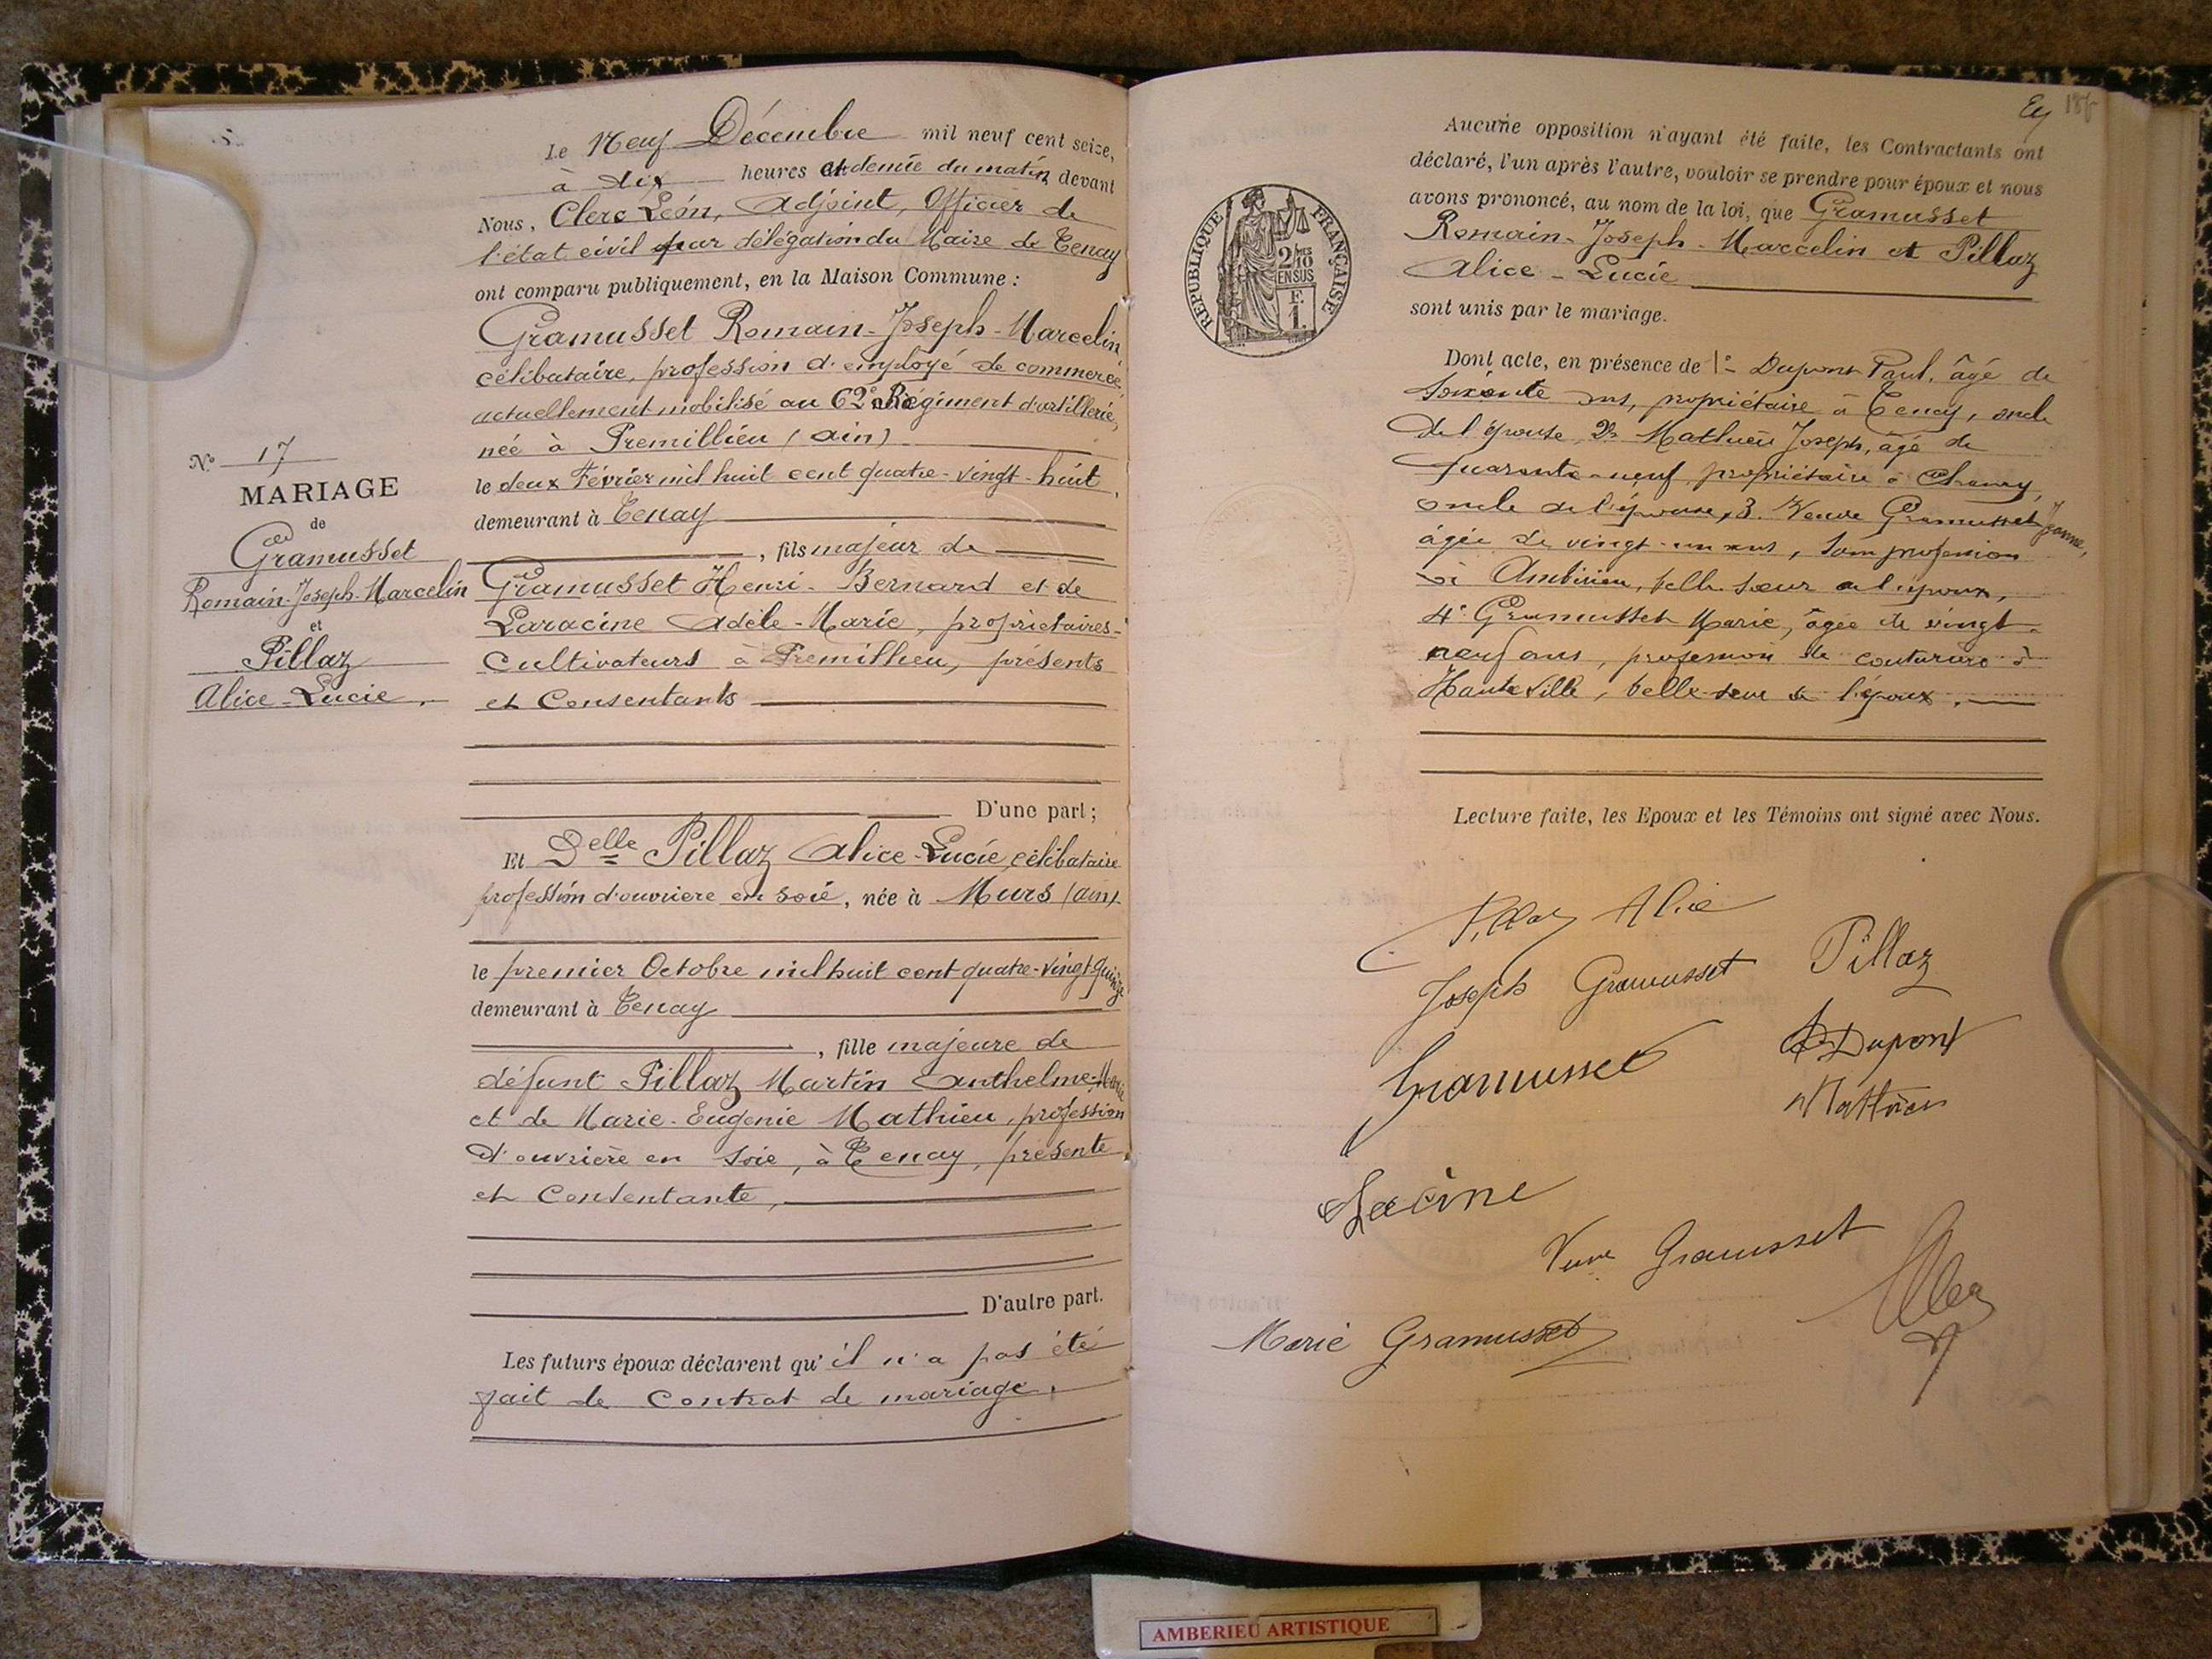 Le Neuf Décembre mil neuf cent seize,
à dix heures et demie du matin devant
Nous, Clerc Léon, Adjoint, Officier de
l'état civil par délégation du Maire de Tenay
ont comparu publiquement, en la Maison Commune :
Gramusset Romain-Joseph-Marcelin
célibataire, profession d'employé de commerce,
actuellement mobilisé au 62e Régiment d'artillerie,
née à Premillieu (Ain)
le deux Février mil huit cent quatre-vingt-huit,
demeurant à Tenay
, fils majeur de
Gramusset Henri-Bernard et de
Laracine Adèle-Marie, propriétaires-
cultivateurs à Premillieu, présents
et Consentants
D'une part;
Et Delle Pillaz Alice-Lucie, célibataire
profession d'ouvriere en soie, née à Murs (Ain)
le premier Octobre mil huit cent quatre-vingt-quinze
demeurant à Tenay
, fille majeure de
défunt Pillaz Martin Anthelme-
et de Marie-Eugenie Mathieu, profession
d'ouvrière en soie, à Tenay, présente
et Consentante,
D'autre part.
Les futurs époux déclarent qu'il n'a pas été
fait de Contrat de mariage.
N° 17
MARIAGE
de
Gramusset
Romain-Joseph-Marcelin
et
Pillaz
Alice-Lucie.
186
RÉPUBLIQUE FRANÇAISE
2/10
EN SUS
F.
1.
Aucune opposition n'ayant été faite, les Contractants ont
déclaré, l'un après l'autre, vouloir se prendre pour époux et nous
avons prononcé, au nom de la loi, que Gramusset
Romain-Joseph-Marcelin et Pillaz
Alice-Lucie
sont unis par le mariage.
Dont acte, en présence de 1° Dupont Paul, âgé de
soixante ans, propriétaire à Tenay, oncle
de l'épouse, 2° Mathieu Joseph, âgé de
quarante-neuf, propriétaire à
oncle de l'épouse, 3. Veuve Gramusset Jeanne,
âgée de vingt-un ans, sans profession
à Ambérieu, belle-sœur de l'époux,
4° Gramusset Marie, âgée de vingt-
neuf ans, profession de couturière à
Hauteville, belle-sœur de l'époux.
Lecture faite, les Epoux et les Témoins ont signé avec Nous.
Pillaz Alice
Joseph Gramusset
Pillaz
Gramusset
Dupont
Mathieu
Veuve Gramusset
Marie Gramusset
Clerc
AMBERIEU ARTISTIQUE